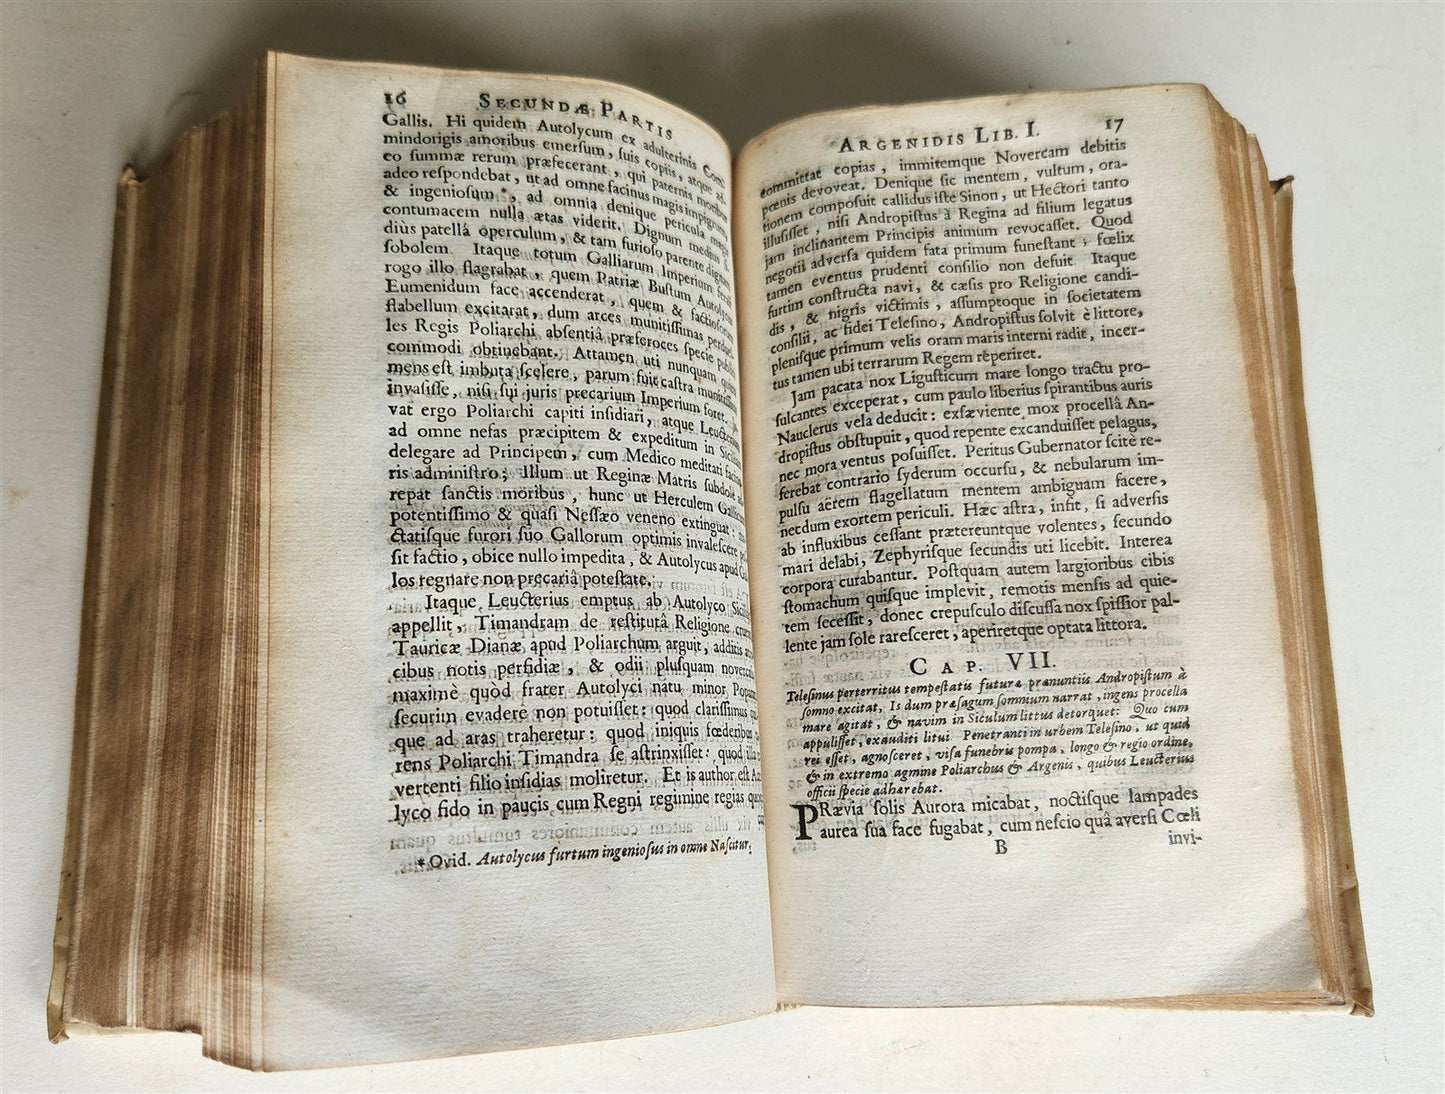 16 SECUNDÆ PARTIS
Gallis. Hi quidem Autolycum ex adulterinis Com-
mindorigis amoribus emersum, suis copiis, atque ad-
eo summæ rerum præfecerant, qui paternis moribus
adeo respondebat, ut ad omne facinus magis impigrum,
& ingeniosum *, ad omnia denique pericula magis
contumacem nulla ætas viderit. Dignum medius
diùs patellâ operculum, & tam furioso parente dignam
sobolem. Itaque totum Galliarum Imperium ferali
rogo illo flagrabat, quem Patriæ Bustum Autolycus
Eumenidum face accenderat, quem & factiosorum
flabellum excitarat, dum arces munitissimas perduel-
les Regis Poliarchi absentiâ præferoces specie publici
commodi obtinebant. Attamen uti nunquam quem
mens est imbuta scelere, parum fuit castra munitissima
invasisse, nisi sui juris precarium Imperium foret.
vat ergo Poliarchi capiti insidiari, atque Leucterium
ad omne nefas præcipitem & expeditum in Siciliam
delegare ad Principem, cum Medico meditati facino-
ris administro; Illum ut Reginæ Matris subdolè
repat sanctis moribus, hunc ut Herculem Gallicum
potentissimo & quasi Nessæo veneno extinguat:
ctatisque furori suo Gallorum optimis invalescere
sit factio, obice nullo impedita, & Autolycus apud Gal-
los regnare non precariâ potestate.
Itaque Leucterius emptus ab Autolyco Siciliam
appellit, Timandram de restitutâ Religione
Tauricæ Dianæ apud Poliarchum arguit, additis
cibus notis perfidiæ, & odii plusquam novercalis
maximè quòd frater Autolyci natu minor, Popam
securim evadere non potuisset: quod clarissimus
que ad aras traheretur: quod iniquis fœderibus
rens Poliarchi Timandra se astrinxisset: quod illa
vertenti filio insidias moliretur. Et is author est Auto-
lyco fido in paucis cum Regni regimine regias quoque
* Ovid. Autolycus furtum ingeniosus in omne Nascitur.
ARGENIDIS LIB. I. 17
committat copias, immitemque Novercam debitis
pœnis devoveat. Denique sic mentem, vultum, ora-
tionem composuit callidus iste Sinon, ut Hectori tanto
illusisset, nisi Andropistus à Regina ad filium legatus
jam inclinantem Principis animum revocasset. Quod
negotii adversa quidem fata primum funestant; fœlix
tamen eventus prudenti consilio non defuit. Itaque
furtim constructa navi, & cæsis pro Religione candi-
dis, & nigris victimis, assumptoque in societatem
consilii, ac fidei Telesino, Andropistus solvit è littore,
plenisque primum velis oram maris interni radit, incer-
tus tamen ubi terrarum Regem reperiret.
Jam pacata nox Ligusticum mare longo tractu pro-
sulcantes exceperat, cum paulo liberius spirantibus auris
Nauclerus vela deducit: exsæviente mox procellâ An-
dropistus obstupuit, quod repente excanduisset pelagus,
nec mora ventus posuisset. Peritus Gubernator scitè re-
ferebat contrario syderum occursu, & nebularum im-
pulsu aërem flagellatum mentem ambiguam facere,
necdum exortem periculi. Hæc astra, infit, si adversis
ab influxibus cessant prætereuntque volentes, secundo
mari delabi, Zephyrisque secundis uti licebit. Interea
corpora curabantur. Postquam autem largioribus cibis
stomachum quisque implevit, remotis mensis ad quie-
tem secessit, donec crepusculo discussa nox spissior pal-
lente jam sole raresceret, aperiretque optata littora.
CAP. VII.
Telesinus perterritus tempestatis futuræ prænuntiis Andropistum à
somno excitat, Is dum præsagum somnium narrat, ingens procella
mare agitat, & navim in Siculum littus detorquet: Quo cum
appulisset, exauditi litui Penetranti in urbem Telesino, ut quid
rei esset, agnosceret, visa funebris pompa, longo & regio ordine,
& in extremo agmine Poliarchus & Argenis, quibus Leucterius
officii specie adhærebat.
PRævia solis Aurora micabat, noctisque lampades
aurea sua face fugabat, cum nescio quâ aversi Cœli
B invi-